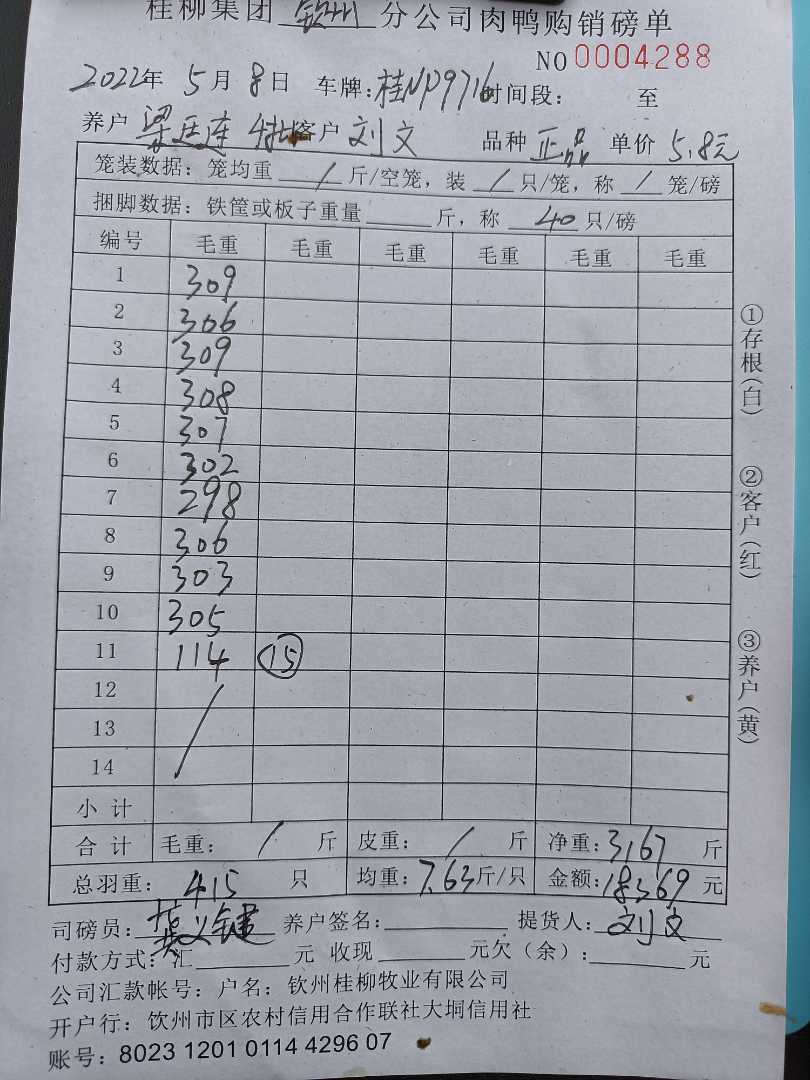 桂柳集团 钦州 分公司肉鸭购销磅单
NO 0004288
2022年 5月 8日 车牌:桂NP9716 时间段: 至
养户 梁廷连 客户 刘文 品种 正品 单价 5.8元
笼装数据: 笼均重 / 斤/空笼, 装 / 只/笼, 称 / 笼/磅
捆脚数据: 铁筐或板子重量 斤, 称 40 只/磅
编号 毛重 毛重 毛重 毛重 毛重 毛重
1 309
2 306
3 309
4 308
5 307
6 302
7 298
8 306
9 303
10 305
11 114 15
12
13
14
小计
合计 毛重: / 斤 皮重: / 斤 净重: 3167 斤
总羽重: 415 只 均重: 7.63 斤/只 金额: 18369 元
司磅员: 养户签名: 提货人: 刘文
付款方式: 汇 元 收现 元欠(余): 元
公司汇款帐号: 户名: 钦州桂柳牧业有限公司
开户行: 饮州市区农村信用合作联社大垌信用社
账号: 8023 1201 0114 4296 07
①存根(白)
②客户(红)
③养户(黄)